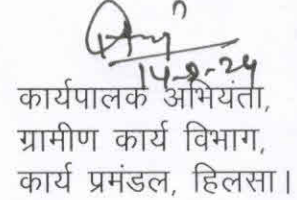 14-8-24
कार्यपालक अभियंता,
ग्रामीण कार्य विभाग,
कार्य प्रमंडल, हिलसा।